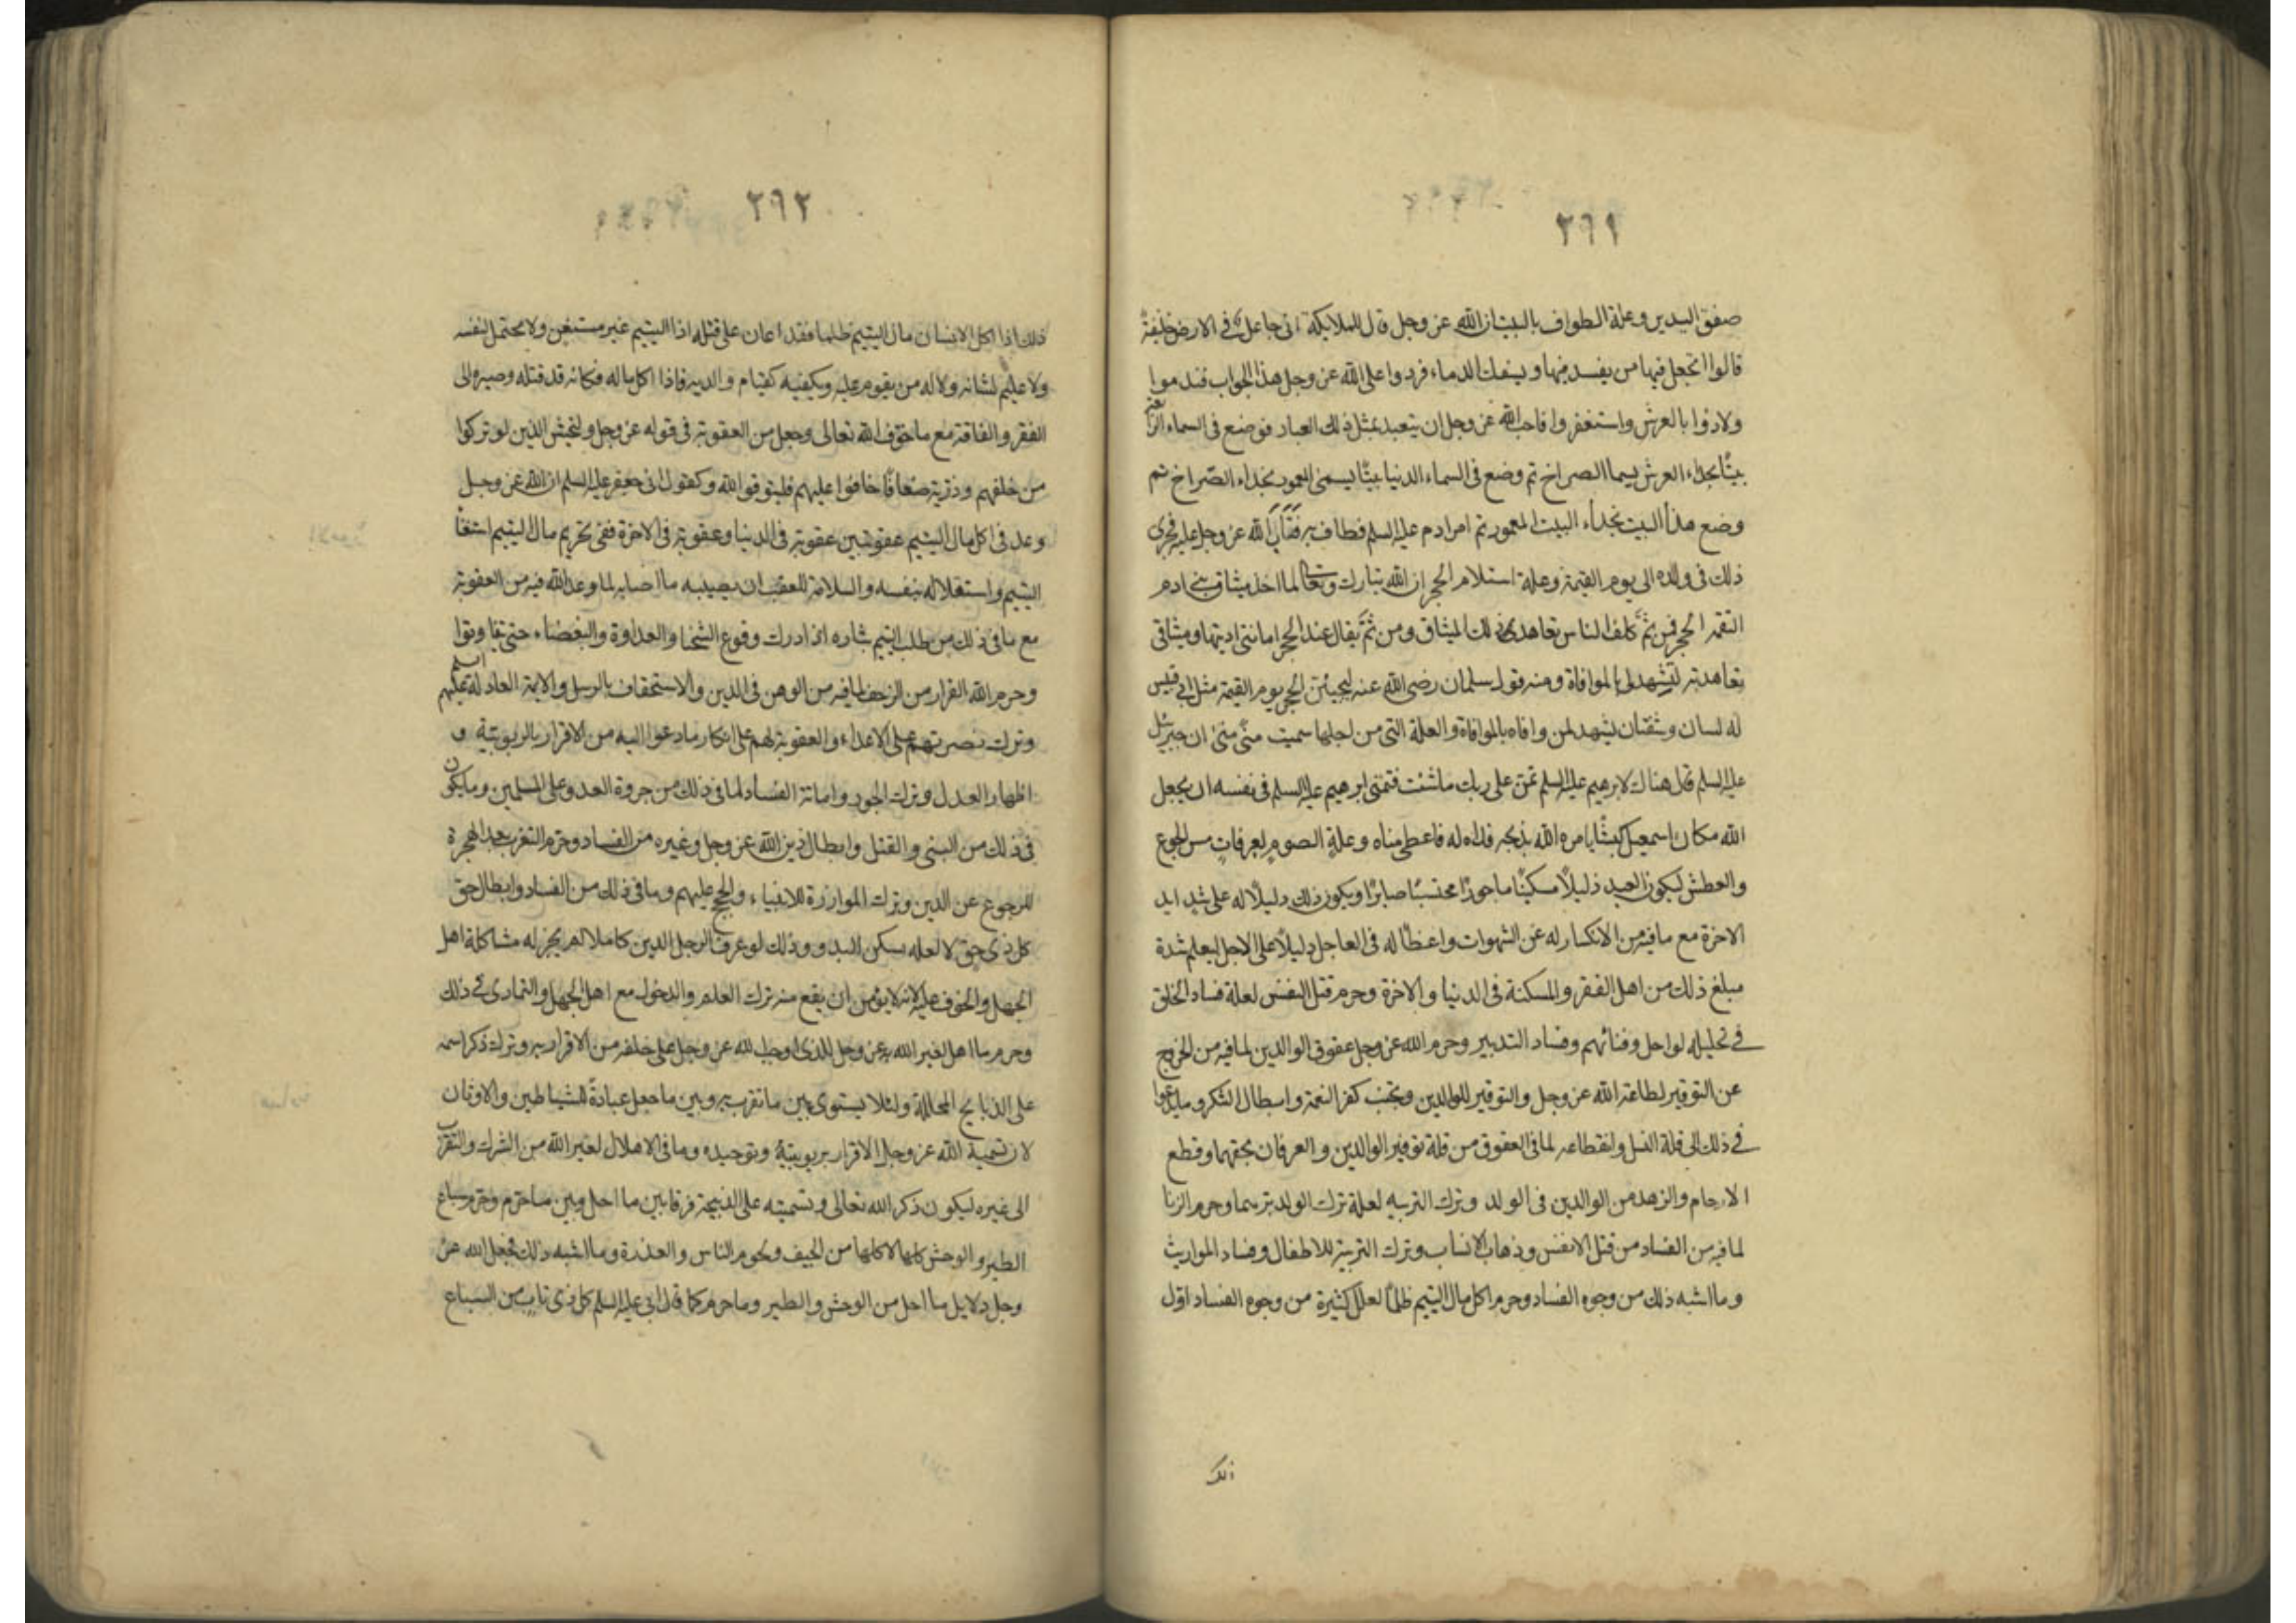 ٢٦١
صفق اليدين وعلة الطواف بالبيت ان الله عز وجل قال للملايكة انى جاعل فى الارض خليفة
قالوا اتجعل فيها من يفسد فيها و يسفك الدماء فردوا على الله عز وجل هذا الجواب فندموا
ولاذوا بالعرش واستغفروا فاحب الله عز وجل ان يتعبد بمثل ذلك العباد فوضع فى السماء الرابعة
بيتًا بحذاء العرش يسما الصراخ ثم وضع فى السماء الدنيا بيتًا يسمى المعمور بحذاء الصّراخ ثم
وضع هذا البيت بحذاء البيت المعمور ثم امر ادم عليه السلم فطاف به فتاب الله عز وجل عليه فجرى
ذلك فى ولده الى يوم القيمة وعلة استلام الحجر ان الله تبارك وتعالى لما اخذ ميثاق بنى ادم
التقمه الحجر فمن ثمّ كلف الناس تعاهد ذلك الميثاق ومن ثمّ يقال عند الحجر امانتى اديتها وميثاقى
تعاهدته لتشهد لى بالموافاة ومنه قول سلمان رضى الله عنه ليجيئن الحجر يوم القيمة مثل ابى قبيس
له لسان وشفتان يشهد لمن وافاه بالموافاة والعلة التى من اجلها سميت منًى منًى ان جبرئيل
عليه السلم قال هناك لابرهيم عليه السلم تمنّ على ربك ماشئت فتمنى ابرهيم عليه السلم فى نفسه ان يجعل
الله مكان اسمعيل كبشًا يامره الله بذبحه فداه له فاعطى مناه وعلة الصوم لعرفان مس الجوع
والعطش ليكون العبد ذليلًا مسكينًا ماجورًا محتسبًا صابرًا ويكون ذلك دليلًا له على شدايد
الاخرة مع مافيه من الانكسار له عن الشهوات واعظًا له فى العاجل دليلًا على الاجل ليعلم شدة
مبلغ ذلك من اهل الفقر والمسكنة فى الدنيا والاخرة وحرم قتل النفس لعلة فساد الخلق
فى تحليله لو احل وفنائهم وفساد التدبير وحرم الله عز وجل عقوق الوالدين لمافيه من الخروج
عن التوقير لطاعة الله عز وجل والتوقير للوالدين وتجنب كفر النعمة وابطال الشكر وما يدعوا
فى ذلك الى قلة النسل وانقطاعه لما فى العقوق من قلة توقير الوالدين والعرفان بحقهما وقطع
الارحام والزهد من الوالدين فى الولد وترك التربيه لعلة ترك الولد برهما وحرم الزنا
لمافيه من الفساد من قتل الانفس وذهاب الانساب وترك التربية للاطفال وفساد المواريث
وما اشبه ذلك من وجوه الفساد وحرم اكل مال اليتيم ظلمًا لعلل كثيرة من وجوه الفساد اوّل
٢٦٢
ذلك اذا اكل الانسان مال اليتيم ظلما فقد اعان على قتله اذا اليتيم غير مستغن ولا محتمل لنفسه
ولا عليم لشانه ولا له من يقوم عليه ويكفيه كقيام والديه فاذا اكل ماله فكانه قد قتله وصيره الى
الفقر والفاقة مع ما خوّف الله تعالى وجعل من العقوبة فى قوله عز وجل وليخش الذين لو تركوا
من خلفهم وذرية ضعافًا خافوا عليهم فليتوقوا الله وكقول ابى جعفر عليه السلم ان الله عز وجل
وعد فى اكل مال اليتيم عقوبتين عقوبة فى الدنيا وعقوبة فى الاخرة ففى تحريم مال اليتيم استغنا
اليتيم واستقلاله بنفسه والسلامة للعقب ان يصيبه ما اصابه لما وعد الله فيه من العقوبة
مع ما فى ذلك من طلب اليتيم بثاره اذا ادرك وقوع الشحنا والعداوة والبغضاء حتى يتفانوا
وحرم الله الفرار من الزحف لمافيه من الوهن فى الدين والاستخفاف بالرسل والايمة العادلة عليهم السلم
وترك نصرتهم على الاعداء والعقوبة لهم على انكار ما دعوا اليه من الاقرار بالربوبيّة و
اظهار العدل وترك الجور واماتة الفساد لما فى ذلك من جروة العدو على المسلمين وما يكون
فى ذلك من السبى والقتل وابطال دين الله عز وجل وغيره من الفساد وحرم التعرب بعد الهجرة
للرجوع عن الدين وترك الموازرة للانبياء والحجج عليهم وما فى ذلك من الفساد وابطال حق
كل ذى حق لا لعله سكن البدو وذلك لو عرف الرجل الدين كاملا لم يجز له مشاكلة اهل
الجهل والخوف عليه لانه لا يؤمن ان يقع منه ترك العلم والدخول مع اهل الجهل والتمادى فى ذلك
وحرم ما اهل لغير الله به عز وجل للذى اوجب لله عز وجل على خلقه من الاقرار به وترك ذكر اسمه
على الذبايح المحللة ولئلا يستوى بين ما تقرب به وبين ما جعل عبادةً للشياطين والاوثان
لان تسمية الله عز وجل الاقرار بربوبيته وتوحيده وما فى الاهلال لغير الله من الشرك والتقرب
الى غيره ليكون ذكر الله تعالى وتسميته على الذبيحة فرقا بين ما احل وبين ما حرم وحرم سباع
الطير والوحش كلها لاكلها من الجيف ولحوم الناس والعذرة وما اشبه ذلك فجعل الله عز
وجل دلايل ما احل من الوحش والطير وما حرم كما قال ابى عليه السلم كل ذى ناب من السباع